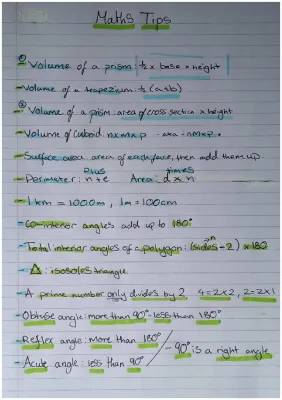 Maths Tips
① Volume of a prism: ½ x base x height
- Volume of a trapezium: ½ (a+b)
② Volume of a prism: area of cross section x height
- Volume of Cuboid: nxmxp - aka - nmxp.
- Surface area: area of each face, then add them up.
plus times
- Perimeter: n+e Area: d x n
- 1km = 1000m, 1m = 100cm
- Co-interior angles add up to 180°
n
- Total interior angles of a polygon: (sides - 2) x 180
- Δ: isosoles triangle.
- A prime number only divides by 2, 4=2x2, 2=2x1
- Obtuse angle: more than 90° less than 180°
- Reflex angle: more than 180°
- Acute angle: less than 90° / - 90° is a right angle